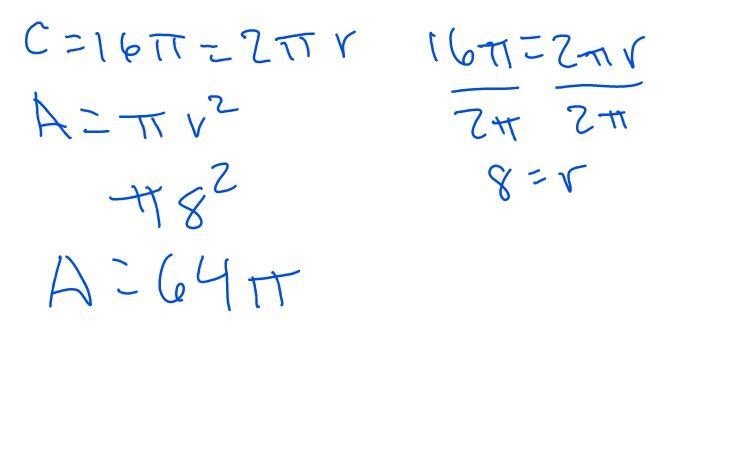 C = 16π = 2πr
A = πr²
π8²
A = 64π
16π = 2πr
2π 2π
8 = r